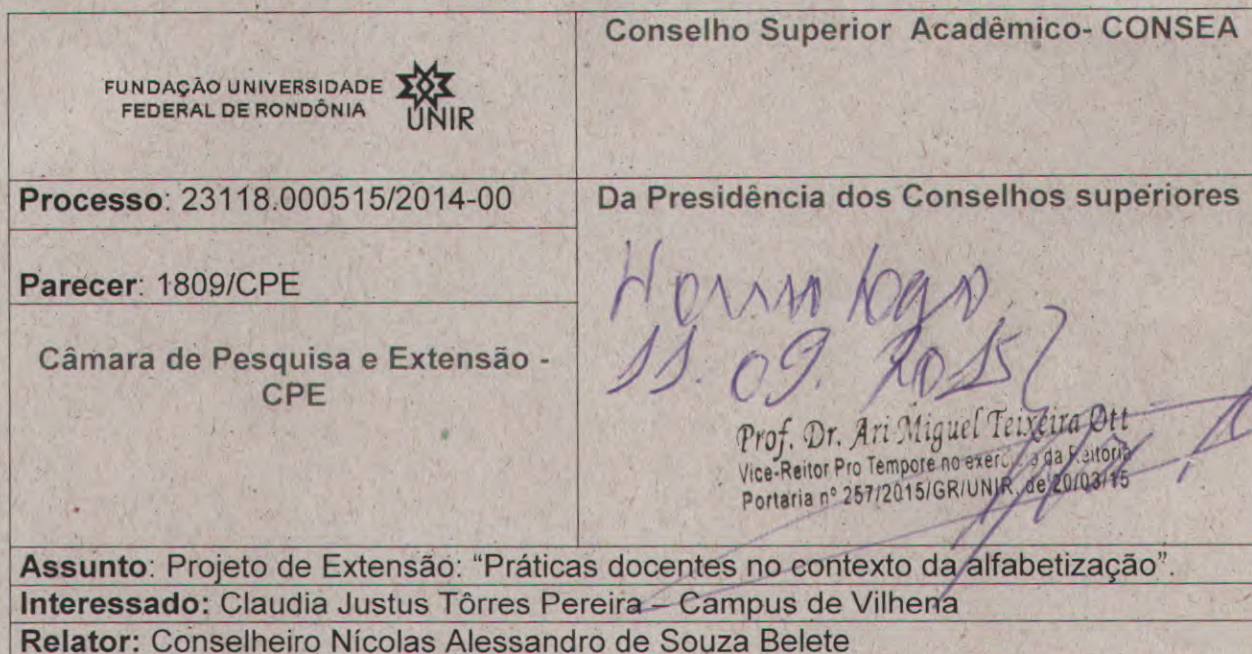 FUNDAÇÃO UNIVERSIDADE
FEDERAL DE RONDÔNIA
UNIR
Conselho Superior Acadêmico- CONSEA
Processo: 23118.000515/2014-00
Parecer: 1809/CPE
Câmara de Pesquisa e Extensão -
CPE
Da Presidência dos Conselhos superiores
Homologo
11.09.2015
Prof. Dr. Ari Miguel Teixeira Ott
Vice-Reitor Pro Tempore no exercício da Reitoria
Portaria nº 257/2015/GR/UNIR, de 20/03/15
Assunto: Projeto de Extensão: “Práticas docentes no contexto da alfabetização”.
Interessado: Claudia Justus Tôrres Pereira – Campus de Vilhena
Relator: Conselheiro Nícolas Alessandro de Souza Belete